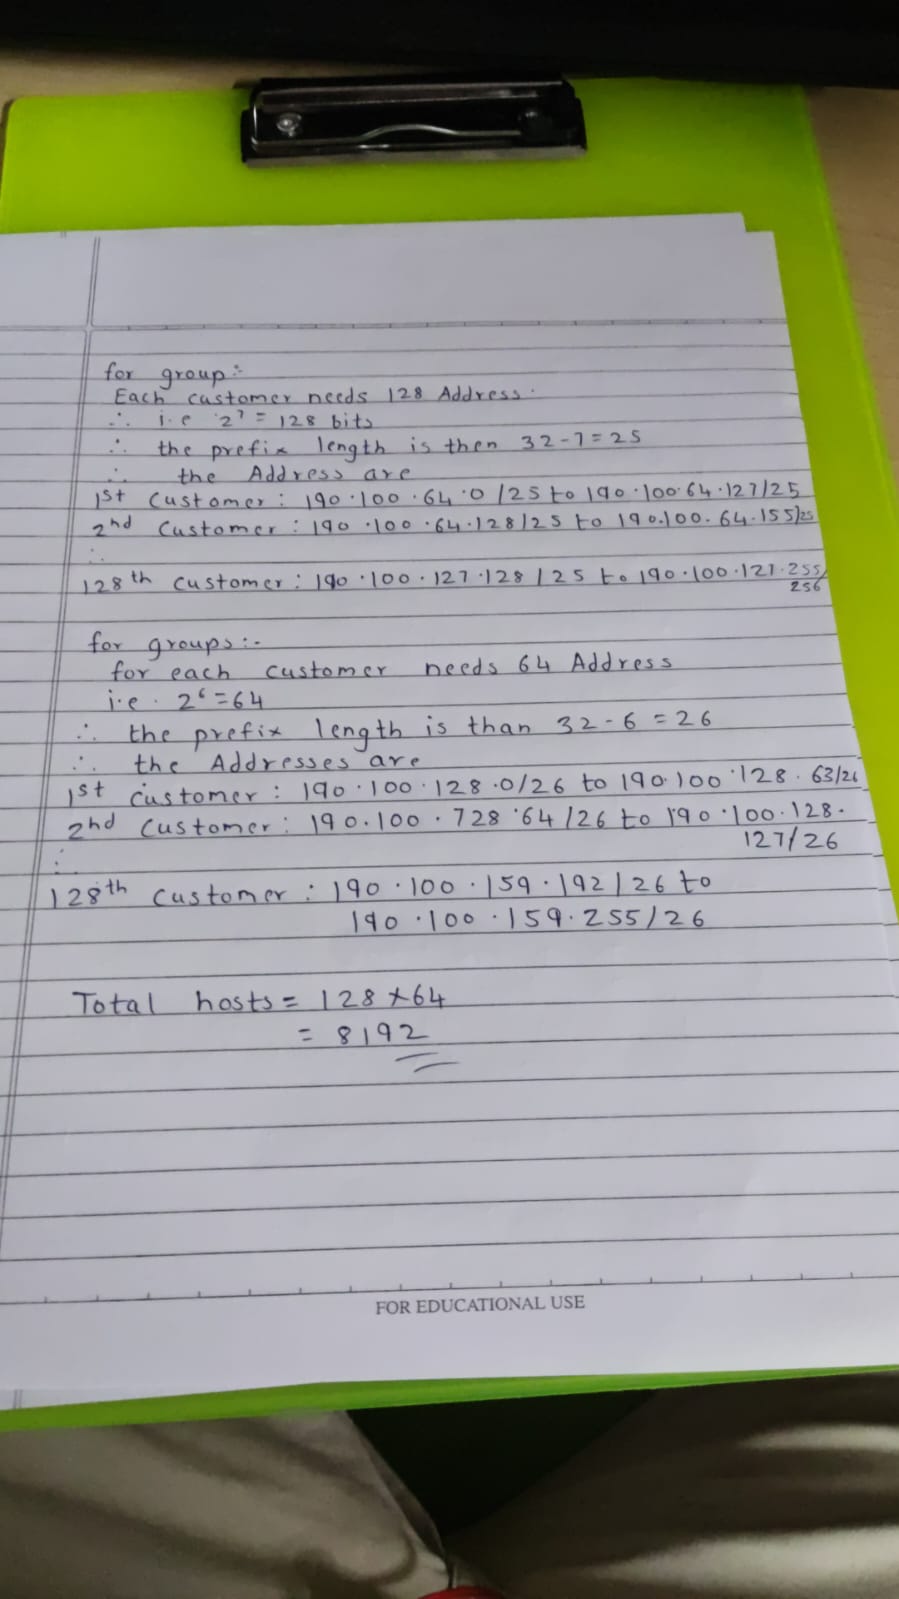 for group :-
Each customer needs 128 Address.
∴ i.e 2⁷ = 128 bits
∴ the prefix length is then 32-7=25
∴ the Address are
1st Customer : 190.100.64.0/25 to 190.100.64.127/25
2nd Customer : 190.100.64.128/25 to 190.100.64.155/25
:
128th customer : 190.100.127.128/25 to 190.100.127.255/
256
for groups :-
for each customer needs 64 Address
i.e. 2⁶=64
∴ the prefix length is than 32-6=26
∴ the Addresses are
1st customer : 190.100.128.0/26 to 190.100.128.63/26
2nd Customer : 190.100.728.64/26 to 190.100.128.
127/26
:
128th customer : 190.100.159.192/26 to
190.100.159.255/26
Total hosts = 128×64
= 8192
FOR EDUCATIONAL USE